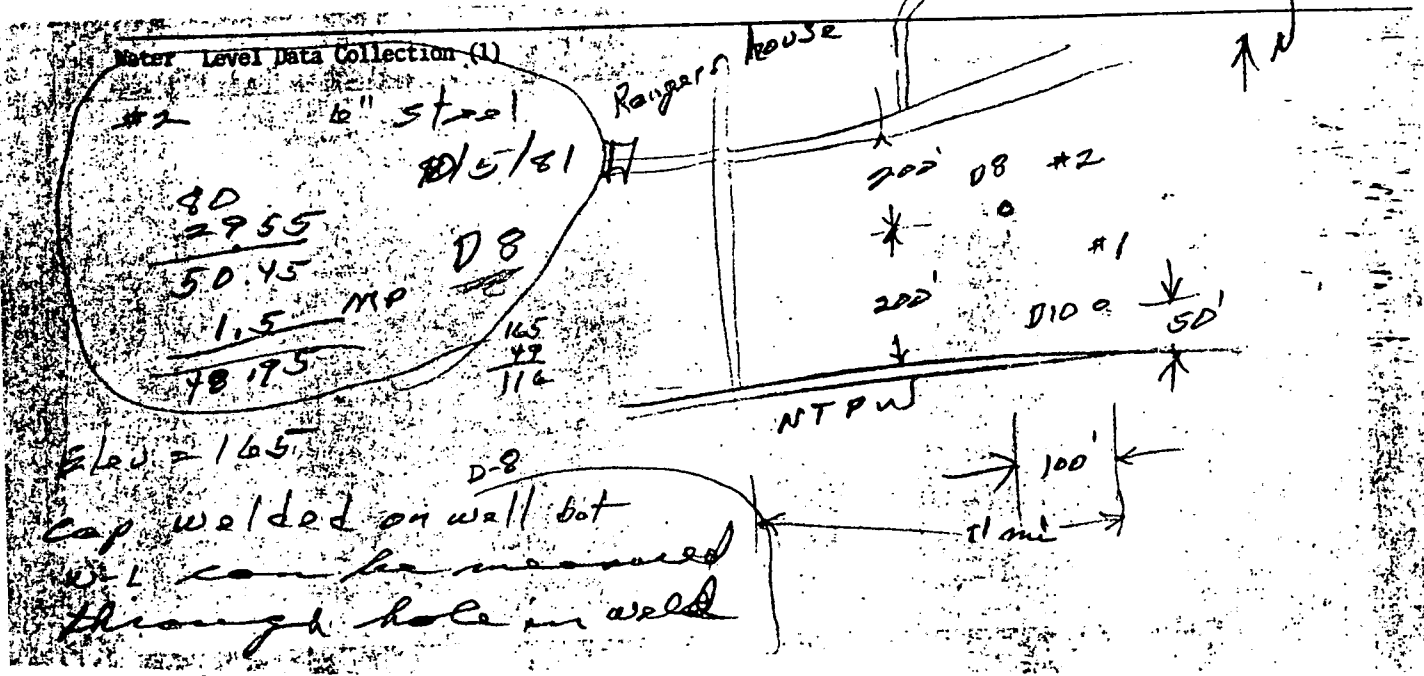 Water Level Data Collection (1)
#2 6" steel
10/5/81
80
29.55
50.45
1.5 MP
48.95
D8
165
49
116
Elev = 165
Cap welded on well but
W-L can be measured
through hole in weld
Rangers house
N
200'
D8 #2
#1
200'
D10
50'
NTPW
D-8
100'
.1 mi